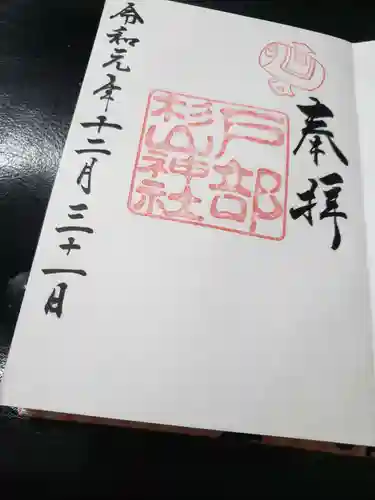 奉拝
戸部
杉山神社
令和元年十二月三十一日